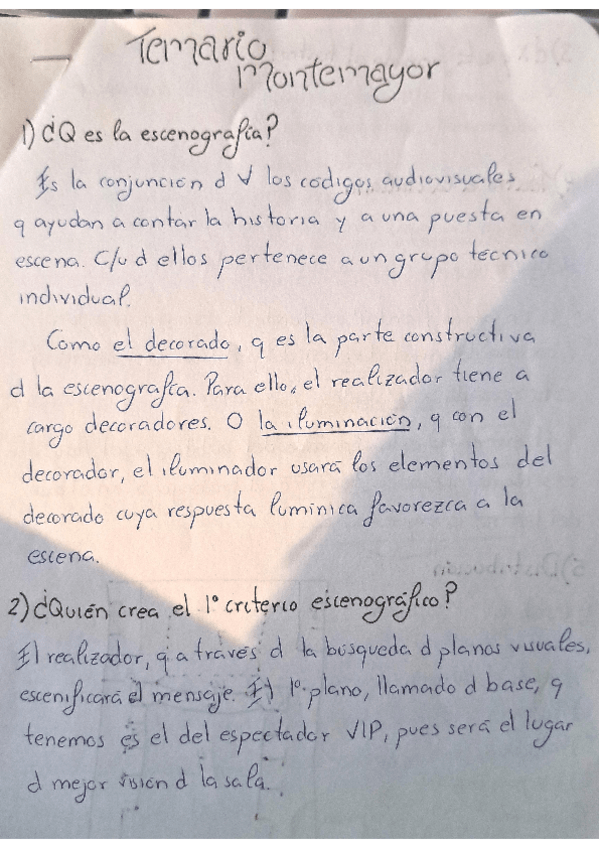 Temario
Montemayor
1) ¿Q es la escenografía?
Es la conjunción d ∀ los códigos audiovisuales
q ayudan a contar la historia y a una puesta en
escena. C/u d ellos pertenece a un grupo técnico
individual.
Como el decorado, q es la parte constructiva
d la escenografía. Para ello, el realizador tiene a
cargo decoradores. O la iluminación, q con el
decorador, el iluminador usará los elementos del
decorado cuya respuesta lumínica favorezca a la
escena.
2) ¿Quién crea el 1º criterio escenográfico?
El realizador, q a través d la búsqueda d planos visuales,
escenificará el mensaje. El 1º plano, llamado d base, q
tenemos es el del espectador VIP, pues será el lugar
d mejor visión d la sala.